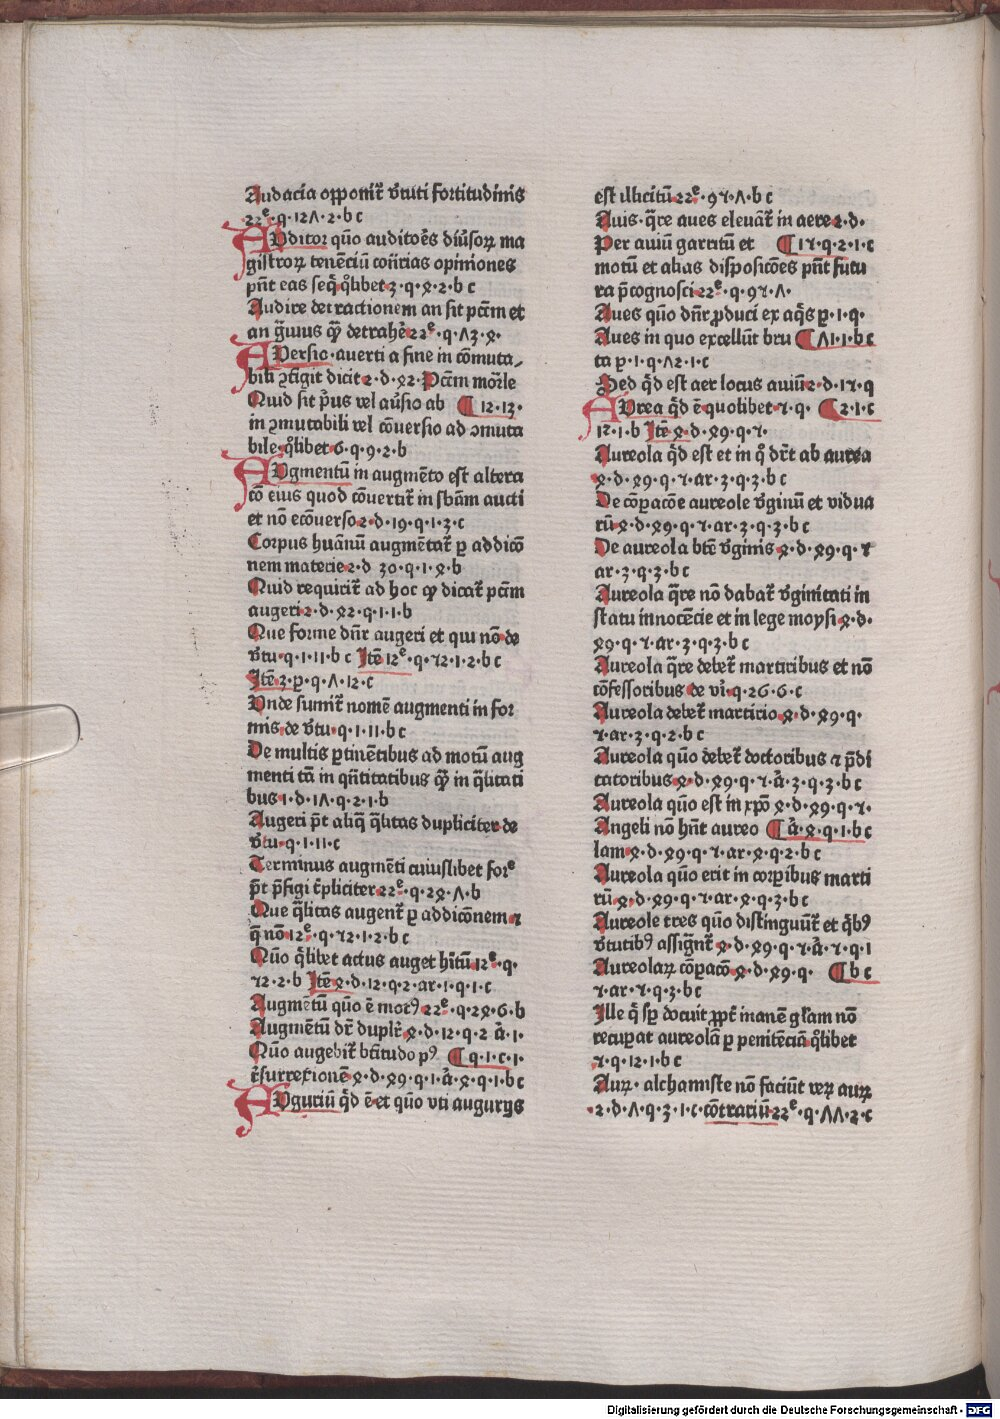 Audacia opponit̃ v̾tuti fortitudinis
22ᵉ·q·12Λ·2·b c
AVditor quo͞ auditoe͞s diu͞soꝝ ma
gistroꝝ tene͞ciu͞ co͞trias opiniones
pn͞t eas seq̃ q͛libet 3·q·ꝝ·2·b c
Audire detractionem an sit pct͞m et
an g̃uius qꝫ detrahe͛ 22ᵉ·q·Λ3·ꝝ·
AVersio·auerti a fine in co͞muta-
bili ꝯtigit dicit 2·d·ꝝ2·Pct͞m mor̃le
Quid sit p͛us vel au͛sio ab ¶ 12·13·
in ꝯmutabili vel co͞uersio ad ꝯmuta
bile·q͛libet·6·q·9·2·b
AVgmentu͞ in augme͞to est altera
co͞ eius quod co͞uertit̃ in sb͞am aucti
et no͞ eco͞uerso 2·d·19·q·1·3·c
Corpus hua͞nu͞ augme͞tat̃ ꝑ addico͞
nem materie 2·d 30·q·1·ꝝ·b
Quid requirit̃ ad hoc ꝙ dicat̃ pct͞m
augeri 2·d·ꝝ2·q·1·1·b
Que forme dn͞r augeri et qui no͞ de
v̾tu·q·1·11·b c Ite͞ 12ᵉ·q·72·1·2·b c
Ite͞ 3·p·q·Λ·12·c
Vnde sumit̃ nome͞ augmenti in for
mis de v̾tu·q·1·11·b c
De multis ꝑtine͞tibus ad motu͞ aug
menti ta͞ in qn͞titatibus qꝫ in q̃litati
bus 1·d·1Λ·q·2·1·b
Augeri p͞t aliq̃ q̃litas dupliciter de
v̾tu·q·1·11·c
Terminus augme͞ti cuiuslibet forᵉ
p͞t p͞figi t͛pliciter 22ᵉ·q·2ꝝ·Λ·b
Que q̃litas augent̃ ꝑ addico͞nem ⁊
q̃ no͞ 12ᵉ·q·72·1·2·b c
Quo͞ q̃libet actus auget hi͞tu͞ 12ᵉ·q·
72·2·b Ite͞ ꝝ·d·12·q·2·ar·1·q·1·c
Augmentu͞ quo͞ e͞ mot⁹ 22ᵉ·q·2ꝝ·6·b
Augme͞tu͞ dr͞ duplr͛ ꝝ·d·12·q·2 a͛·1·
Quo͞ augebit̃ bt͞itudo p⁹ ¶ q·1·c·1·
r͛surrexione͞ ꝝ·d·ꝝ9·q·1·a͛·ꝝ·q·1·b c
AVguriu͞ q͛d e͞ et quo͞ vti augurijs
est illicitu͞ 22ᵉ·97·Λ·b c
Auis·q̃re aues eleua͞t̃ in aere 2·d·
Per auiu͞ garritu͞ et ¶ 17·q·2·1·c
motu͞ et alias disposico͞es pn͞t futu
ra p͞cognosci 22ᵉ·q·97·Λ·
Aues quo͞ dn͞r ꝓduci ex aq̃s p·1·q·
Aues in quo excellu͞t bru ¶ Λ1·1·b c
ta p·1·q·Λ2·1·c
Sed q͛d est aer locus auiu͞ 2·d·17·q
AVrea q͛d e͞ quolibet 7·q· ¶ 2·1·c
12·1·b Ite͞ ꝝ·d·ꝝ9·q·7·
Aureola q͛d est et in q͛ dr͞t ab aurea
ꝝ·d·ꝝ9·q·7·ar·3·q·3·b c
De co͞paco͞e aureole v̾ginu͞ et vidua
ru͞ ꝝ·d·ꝝ9·q·7·ar·3·q·3·b c
De aureola bt͞e v̾ginis ꝝ·d·ꝝ9·q·7
ar·3·q·3·b c
Aureola q̃re no͞ dabat̃ v̾ginitati in
statu innoce͞cie et in lege moysi ꝝ·d·
ꝝ9·q·7·ar·3·q·3·b c
Aureola q̃re debet̃ martiribus et no͞
co͞fessoribus de vi͛·q·26·6·c
Aureola debet̃ martirio ꝝ·d·ꝝ9·q·
7·ar·3·q·2·b c
Aureola quo͞ debet̃ doctoribus ⁊ p͞di
catoribus ꝝ·d·ꝝ9·q·7·a͛·3·q·3·b c
Aureola quo͞ est in xp͞o ꝝ·d·ꝝ9·q·7·
Angeli no͞ hn͞t aureo ¶ a͛·ꝝ·q·1·b c
lam ꝝ·d·ꝝ9·q·7·ar·ꝝ·q·2·b c
Aureola quo͞ erit in corꝑibus marti
ru͞ ꝝ·d·ꝝ9·q·7·ar·ꝝ·q·3·b c
Aureole tres quo͞ distinguu͞t̃ et q͛b⁹
v̾tutib⁹ assigne͞t̃ ꝝ·d·ꝝ9·q·7·a͛·7·q·1
Aureolaꝝ co͞paco͞ ꝝ·d·ꝝ9·q· ¶ b c
7·ar·7·q·3·b c
Ille q͛ sꝑ docuit ꝓpt̃ inane͞ gl͞am no͞
recuperat aureola͞ ꝑ penite͞cia͞ q͛libet
7·q·12·1·b c
Auꝝ·alchamiste no͞ faciu͞t veꝝ auꝝ
·2·d·Λ·q·3·1·c·co͞trariu͞ 22ᵉ·q·ΛΛ·2·c
Digitalisierung gefördert durch die Deutsche Forschungsgemeinschaft - DFG